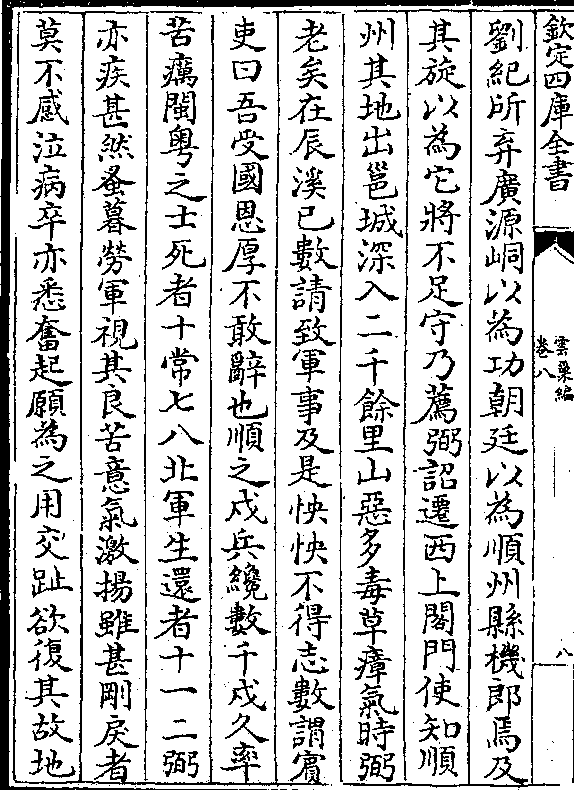 欽定四庫全書
雲巢編
卷八
八
劉紀所弃廣源峒以為功朝廷以為順州縣機郎焉及
其旋以為它將不足守乃薦弼詔遷西上閤門使知順
州其地出邕城深入二千餘里山惡多毒草瘴氣時弼
老矣在辰溪已數請致軍事及是怏怏不得志數謂賓
吏曰吾受國恩厚不敢辭也順之戍兵纔數千戍久率
苦癘閩粤之士死者十常七八北軍生還者十一二弼
亦疾甚然蚤暮勞軍視其良苦意氣激揚雖甚剛戾者
莫不感泣病卒亦悉奮起願為之用交趾欲復其故地